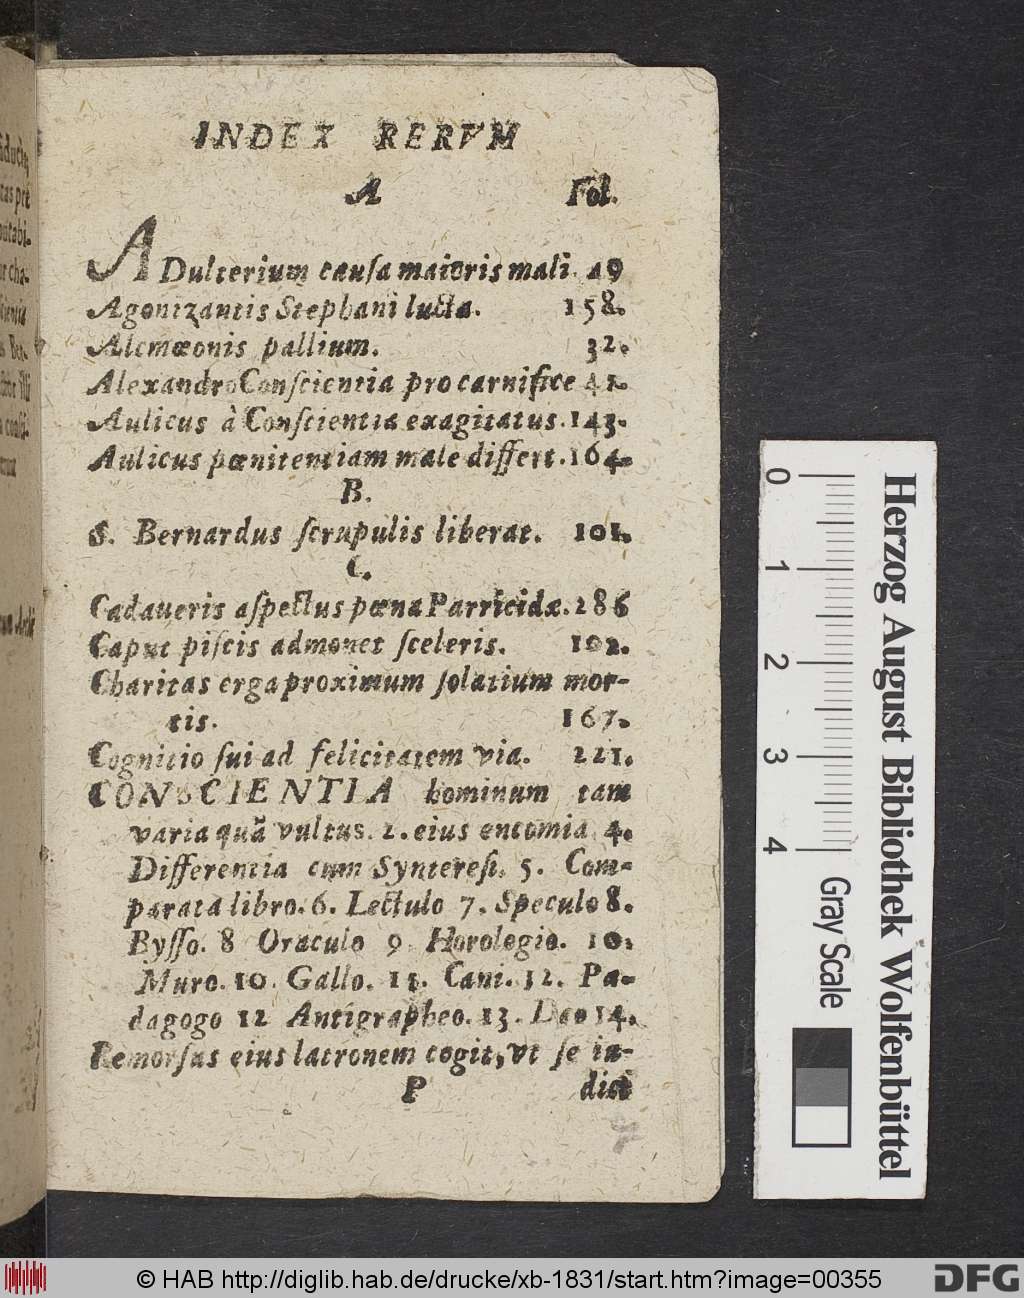 INDEX RERVM
A Fol.
ADulterium cauſa maioris mali. 49
Agonizantis Stephani lucta. 158.
Alcmæonis pallium. 32.
Alexandro Conſcientia pro carnifice 41.
Aulicus à Conſcientia exagitatus. 143.
Aulicus pœnitentiam male differt. 164.
B.
S. Bernardus ſcrupulis liberat. 101.
C.
Cadaueris aſpectus pœna Parricidæ. 186
Caput piſcis admonet ſceleris. 102.
Charitas erga proximum ſolatium mor-
tis. 167.
Cognitio ſui ad felicitatem via. 221.
CONSCIENTIA hominum tam
varia quã vultus. 2. eius encomia 4.
Differentia cum Syntereſi. 5. Com-
parata libro. 6. Lectulo 7. Speculo 8.
Byſſo. 8 Oraculo 9. Horologio. 10.
Muro. 10. Gallo. 11. Cani. 12. Pa-
dagogo 12 Antigrapheo. 13. Deo 14.
Remorſus eius latronem cogit, vt ſe in-
P dict
Herzog August Bibliothek Wolfenbüttel
0 1 2 3 4
Gray Scale
© HAB http://diglib.hab.de/drucke/xb-1831/start.htm?image=00355
DFG